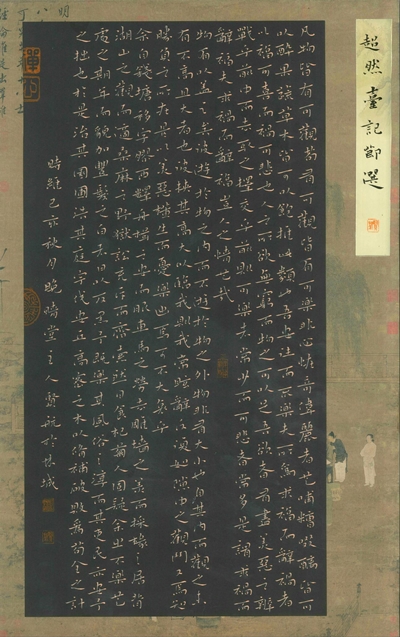 超然臺記節選
凡物皆有可觀苟有可觀皆有可樂非必怪奇瑋麗者也餔糟啜醨皆可
以醉果蔬草木皆可以飽推此類也吾安往而不樂夫所為求福而辭禍者
以福可喜而禍可悲也人之所欲無窮而物之可以足吾欲者有盡美惡之辨
戰乎中而去取之擇交乎前則可樂者常少而可悲者常多是謂求禍而
辭福夫求禍而辭福豈人之情也哉
物有以蓋之矣彼游於物之內而不游於物之外物非有大小也自其內而觀之未
有不高且大者也彼挾其高大以臨我則我常眩亂反覆如隙中之觀鬥又焉知
勝負之所在是以美惡橫生而憂樂出焉可不大哀乎
余自錢塘移守膠西釋舟楫之安而服車馬之勞去雕墻之美而採椽之居背
湖山之觀而適桑麻之野獄訟充斥而齋廚索然日食杞菊人固疑余之不樂也
處之期年而貌加豐髮之白者日以反黑予既樂其風俗之淳而其吏民亦安予
之拙也於是治其園圃潔其庭宇伐安丘高密之木以修補破敗為苟全之計
時維己亥秋月晚晴堂主人